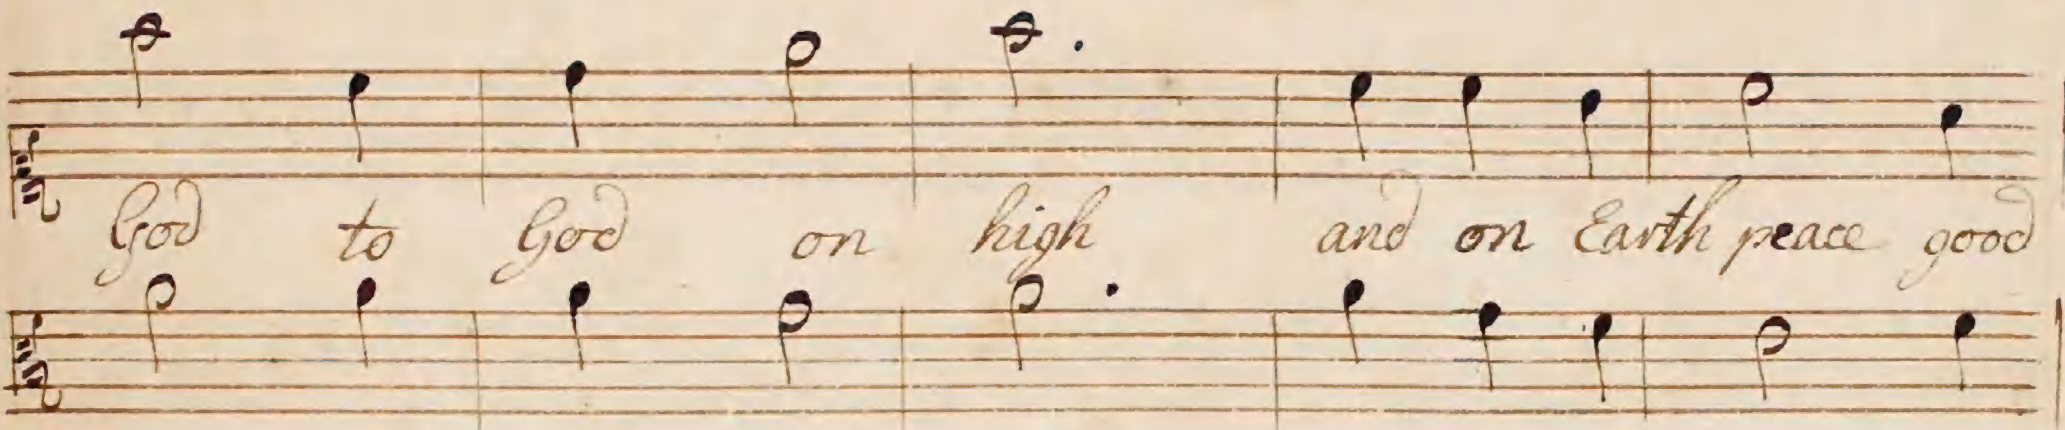 God to God on high and on Earth peace good